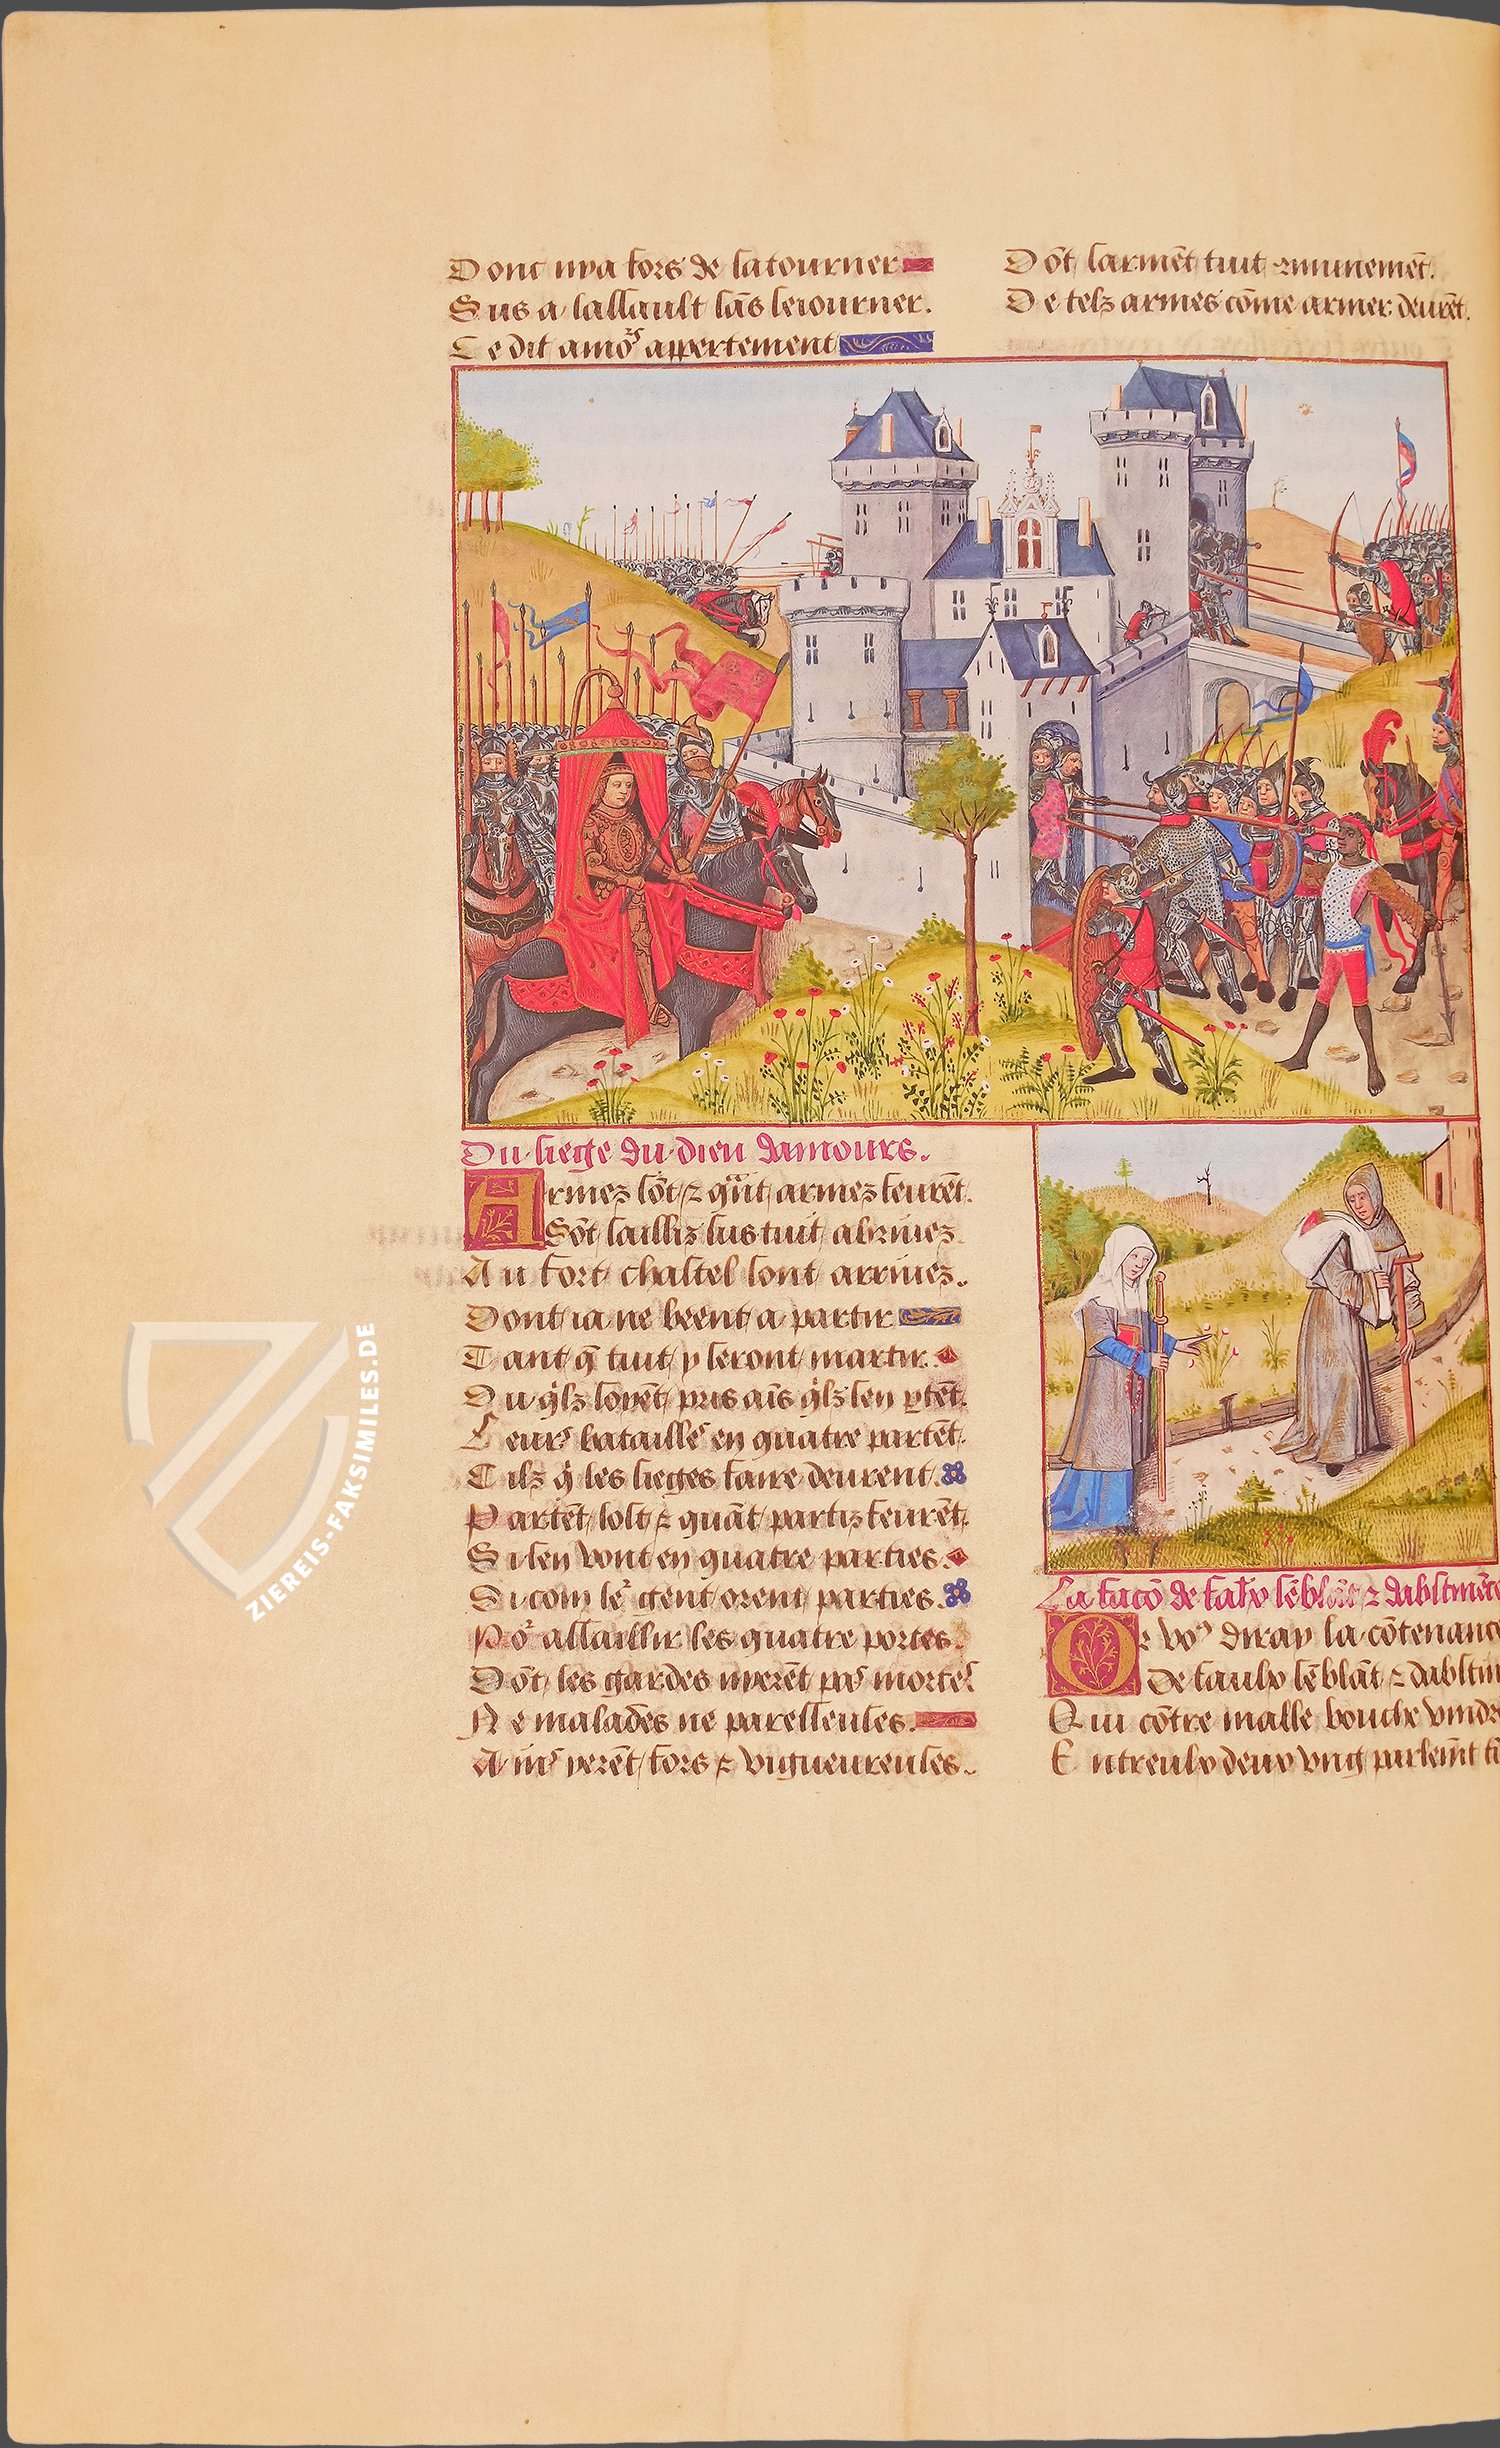 Donc nya fors de latourner
Sus a lassault sãs seiourner.
Ce dit amo᷑s appertement
Dõt sarmẽt tuit ꝯmunemẽt.
De telz armes cõme armer deurẽt.
Du siege du dieu damours.
Armez sõt ⁊ quãt armez feurẽt.
Sõt sailliz sus tuit abriuez
Au fort chastel sont arriuez.
Dont ia ne beent a partir
Tant q̃ tuit y seront martir.
Ou q̓lz soyẽt pris ais q̓lz sen ꝑtẽt.
Leurs batailles en quatre partẽt.
Cilz q̓ les sieges faire deurent
Partẽt lost ⁊ quãt partiz feurẽt.
Si sen vont en quatre parties
Si com le᷑ gent orent parties
Po᷑ assaillir les quatre portes.
Dõt les gardes nyerẽt pas mortes
Ne malades ne paresseuses.
Ains yerẽt fors ⁊ vigueureuses.
La facõ de faulx sẽblãt ⁊ dabstinẽce
Or voꝰ diray la cõtenance
De faulx sẽblãt ⁊ dabstin
Qui cõtre malle bouche vindr
Entreulx deux vng parlemẽt ti
ZIEREIS-FAKSIMILES.DE